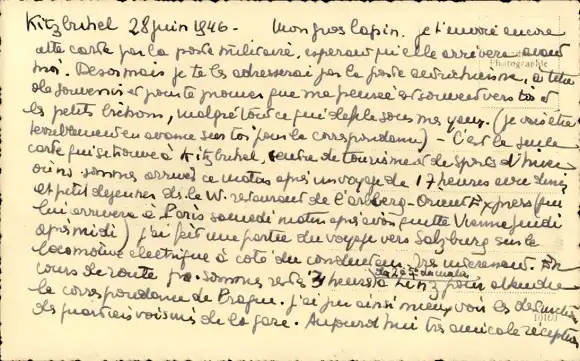 Kitzbuhel 28 juin 1946 - Mon gros lapin. je t'envoie encore
cette carte par la poste militaire, esperant qu'elle arrivera avant
moi. Desormais je te les adresserai par la poste autrichienne, à titre
de souvenir et pour te prouver que ma pensée est souvent vers toi et
les petits bichons, malgré tout ce qui défile sous mes yeux. (je vais être
terriblement en avance sur toi pour la correspondance) - C'est la seule
carte qui se trouve à Kitzbuhel, centre de tourisme et de sports d'hiver
où ns. sommes arrivés ce matin après un voyage de 17 heures avec diner
et petit dejeuner ds. le W. restaurant de l'Arlberg-Orient Express (qui
lui arrivera à Paris samedi matin après avoir quitté Vienne jeudi
après midi) j'ai fait une partie du voyage vers Salzburg sur la
locomotive électrique à coté du conducteur. Très interessant. En
cours de route ns. sommes restés 3 heures à Linz pour attendre
de 2 à 5 du matin
la correspondance de Prague. j'ai pu ainsi mieux voir les destructions
des quartiers voisins de la gare. Aujourd'hui très amicale réception
Photographie